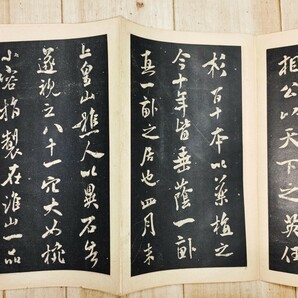 相公以天下之英偉
杉百十本以藥植之
今十年皆垂蔭一畝
真一畝之居也四月末
上皇山樵人以異石告
遂視之八十一穴大如椀
小容指製在淮山一品